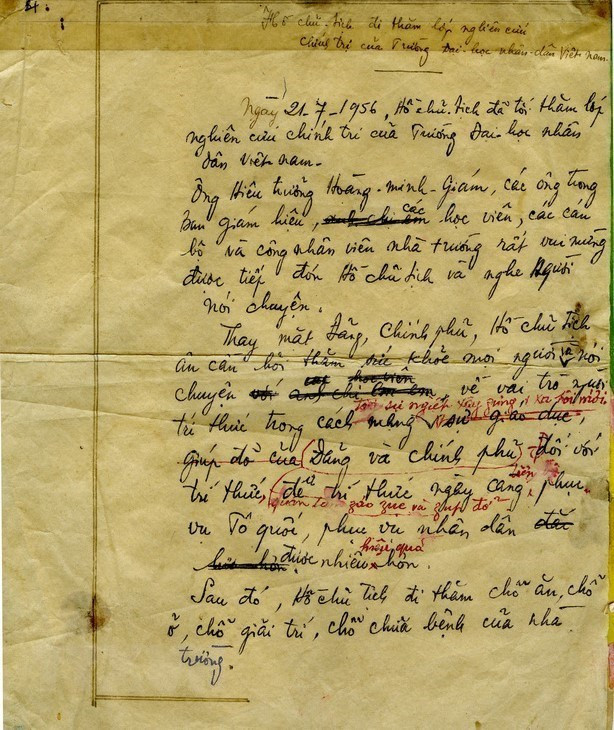 Hồ chủ-tịch đi thăm lớp nghiên cứu
chính trị của Trường Đại-học nhân-dân Việt-nam.
Ngày 21-7-1956, Hồ chủ-tịch đã tới thăm lớp
nghiên cứu chính trị của Trường Đại-học nhân
dân Việt-nam.
Ông Hiệu trưởng Hoàng-minh-Giám, các ông trong
Ban giám hiệu, anh chị em các học viên, các cán
bộ và công nhân viên nhà trường rất vui mừng
được tiếp đón Hồ chủ tịch và nghe Người
nói chuyện.
Thay mặt Đảng, Chính phủ, Hồ chủ tịch
ân cần hỏi thăm sức khỏe mọi người và nói
học viên
chuyện với anh chị em về vai trò người
tới sự nghiệp xây dựng xã hội mới
trí thức trong cách mạng, sự giáo dục,
giúp đỡ của Đảng và chính phủ đối với
trí thức, để trí thức ngày càng tiến phục
quan tâm giáo dục và giúp đỡ
vụ Tổ quốc, phục vụ nhân dân
hiệu quả
được nhiều hơn.
Sau đó, Hồ chủ tịch đi thăm chỗ ăn, chỗ
ở, chỗ giải trí, chỗ chữa bệnh của nhà
trường.